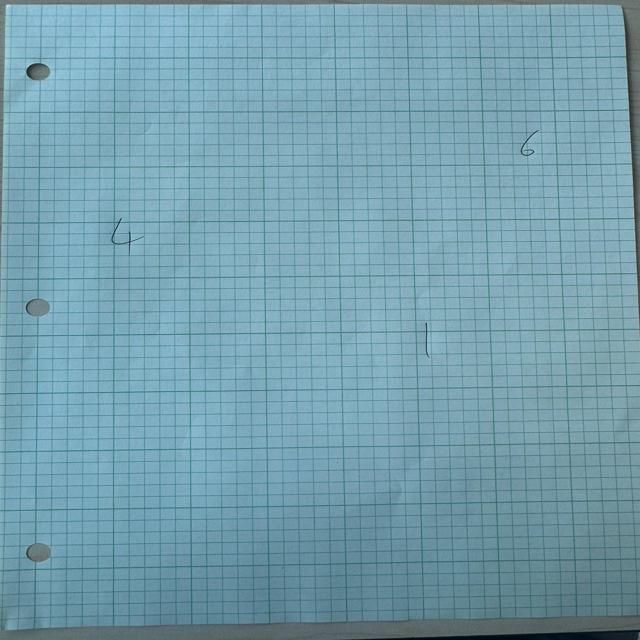 6
4
1